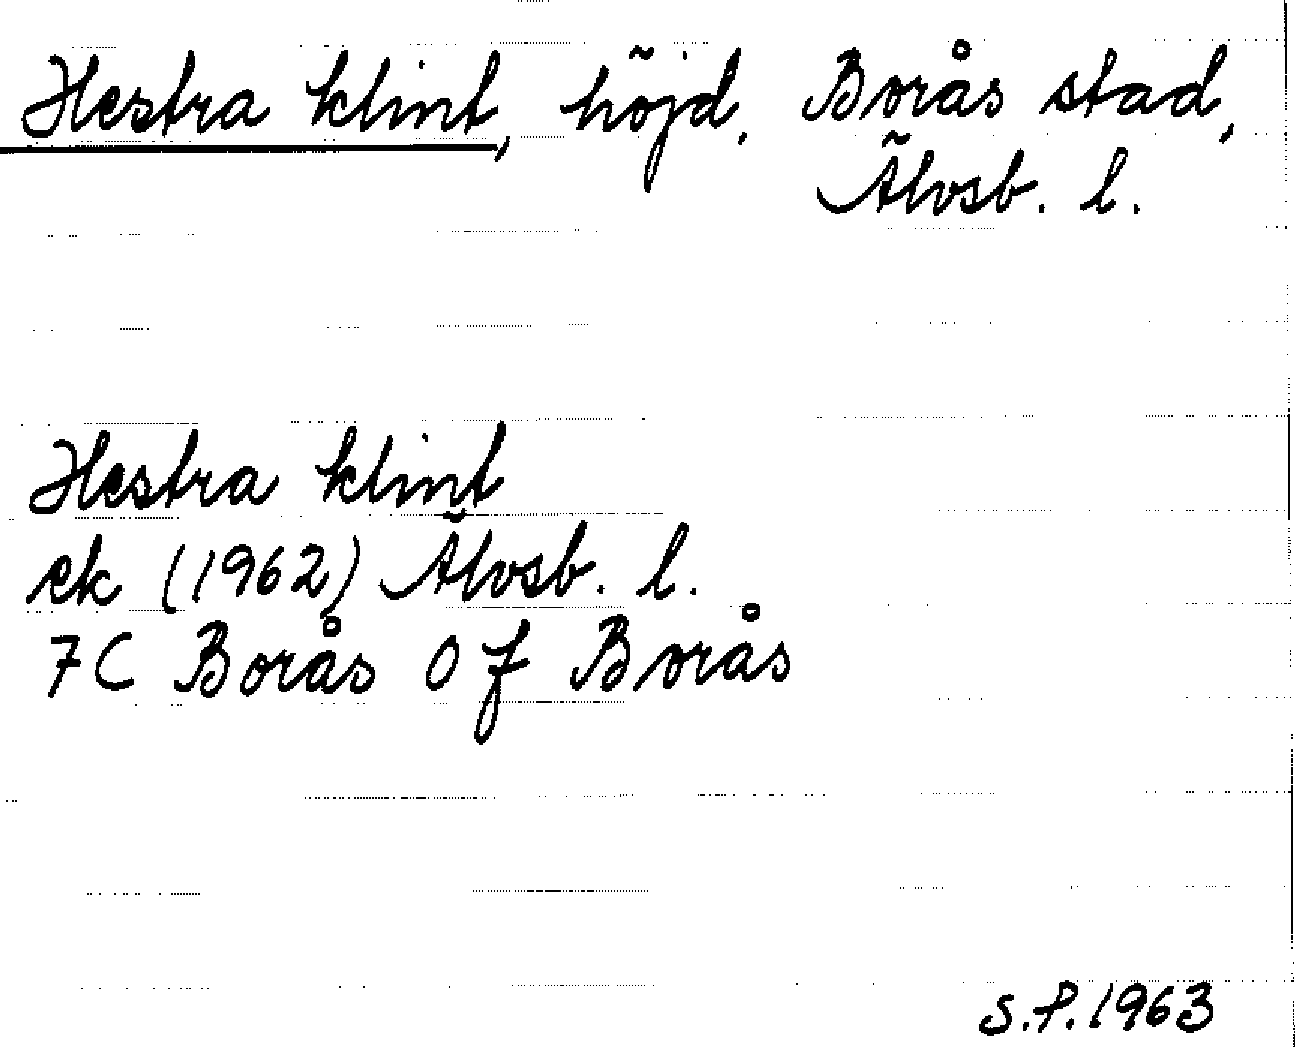 Hestra klint, höjd, Borås stad,
Älvsb. l.
Hestra klint
ek (1962) Älvsb. l.
7C Borås 0 f Borås
S.P. 1963